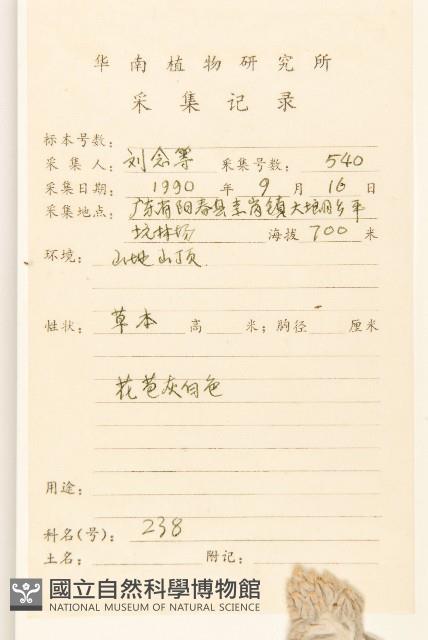 华南植物研究所
采集记录
标本号数：
采集人：刘念等 采集号数： 540
采集日期： 1990 年 9 月 16 日
采集地点：广东省阳春县圭岗镇大垠乡平
坑林场 海拔 700 米
环境： 山地山顶.
性状： 草本 高 米；胸径 厘米
花苞灰白色
用途：
科名(号)： 238
土名： 附记：
國立自然科學博物館
NATIONAL MUSEUM OF NATURAL SCIENCE